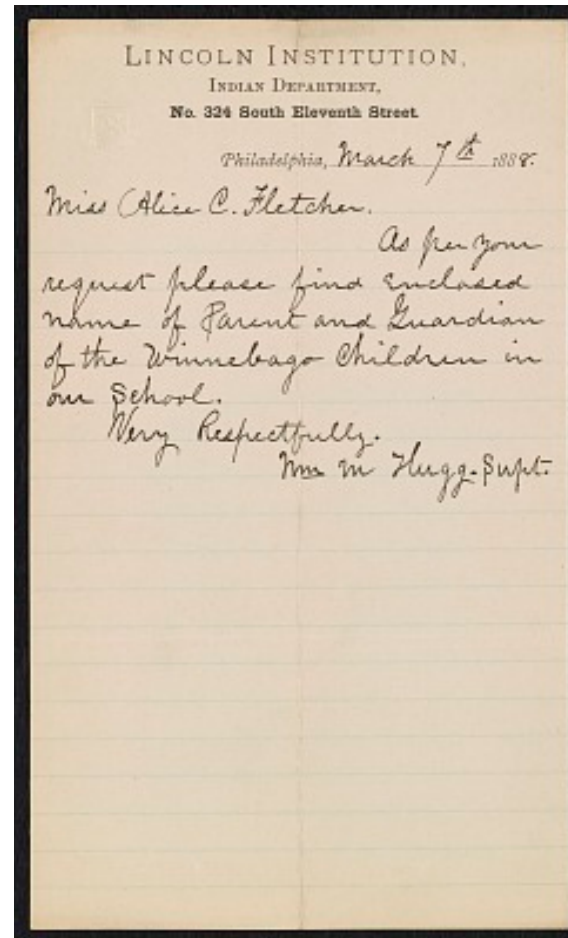 LINCOLN INSTITUTION,
INDIAN DEPARTMENT,
No. 324 South Eleventh Street.
Philadelphia, March 7th 1888.
Miss Alice C. Fletcher.
As per your
request please find enclosed
name of Parent and Guardian
of the Winnebago Children in
our School.
Very Respectfully.
Wm M Hugg. Supt.